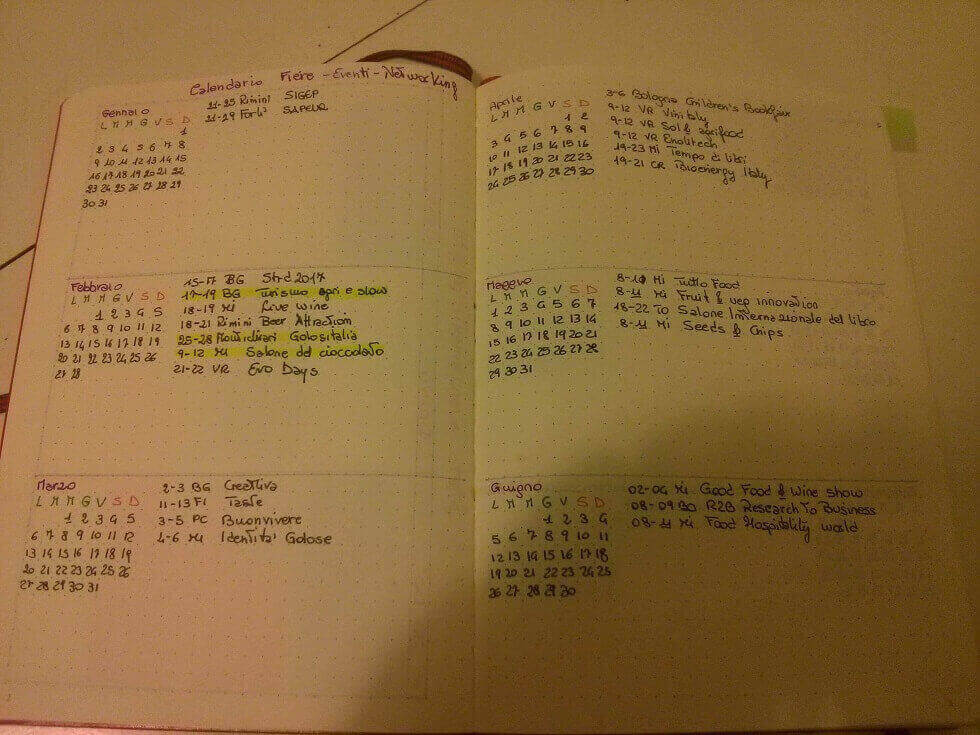 Calendario Fiere - Eventi - Networking
Gennaio
L M M G V S D
1
2 3 4 5 6 7 8
9 10 11 12 13 14 15
16 17 18 19 20 21 22
23 24 25 26 27 28 29
30 31
21-25 Rimini SIGEP
21-29 Forlì SAPEUR
Febbraio
L M M G V S D
1 2 3 4 5
6 7 8 9 10 11 12
13 14 15 16 17 18 19
20 21 22 23 24 25 26
27 28
15-17 BG Strd 2017
17-19 BG Turismo agri e slow
18-19 Mi Live wine
18-21 Rimini Beer Attraction
25-28 Golositalia
9-12 Mi Salone del cioccolato
21-22 VR Evo Days
Marzo
L M M G V S D
1 2 3 4 5
6 7 8 9 10 11 12
13 14 15 16 17 18 19
20 21 22 23 24 25 26
27 28 29 30 31
2-3 BG Creattiva
11-13 FI Taste
3-5 PC Buonvivere
4-6 Mi Identità Golose
Aprile
L M M G V S D
1 2
3 4 5 6 7 8 9
10 11 12 13 14 15 16
17 18 19 20 21 22 23
24 25 26 27 28 29 30
3-6 Bologna Children's Bookfair
9-12 VR Vinitaly
9-12 VR Sol & agrifood
9-12 VR Enolitech
19-23 Mi Tempo di libri
19-21 CR Bioenergy Italy
Maggio
L M M G V S D
1 2 3 4 5 6 7
8 9 10 11 12 13 14
15 16 17 18 19 20 21
22 23 24 25 26 27 28
29 30 31
8-11 Mi Tutto Food
8-11 Mi Fruit & veg innovation
18-22 To Salone Internazionale del libro
8-11 Mi Seeds & Chips
Guigno
L M M G V S D
1 2 3 4
5 6 7 8 9 10 11
12 13 14 15 16 17 18
19 20 21 22 23 24 25
26 27 28 29 30
02-04 Mi Good Food & Wine show
08-09 BO R2B Research To Business
08-11 Mi Food Hospitality world